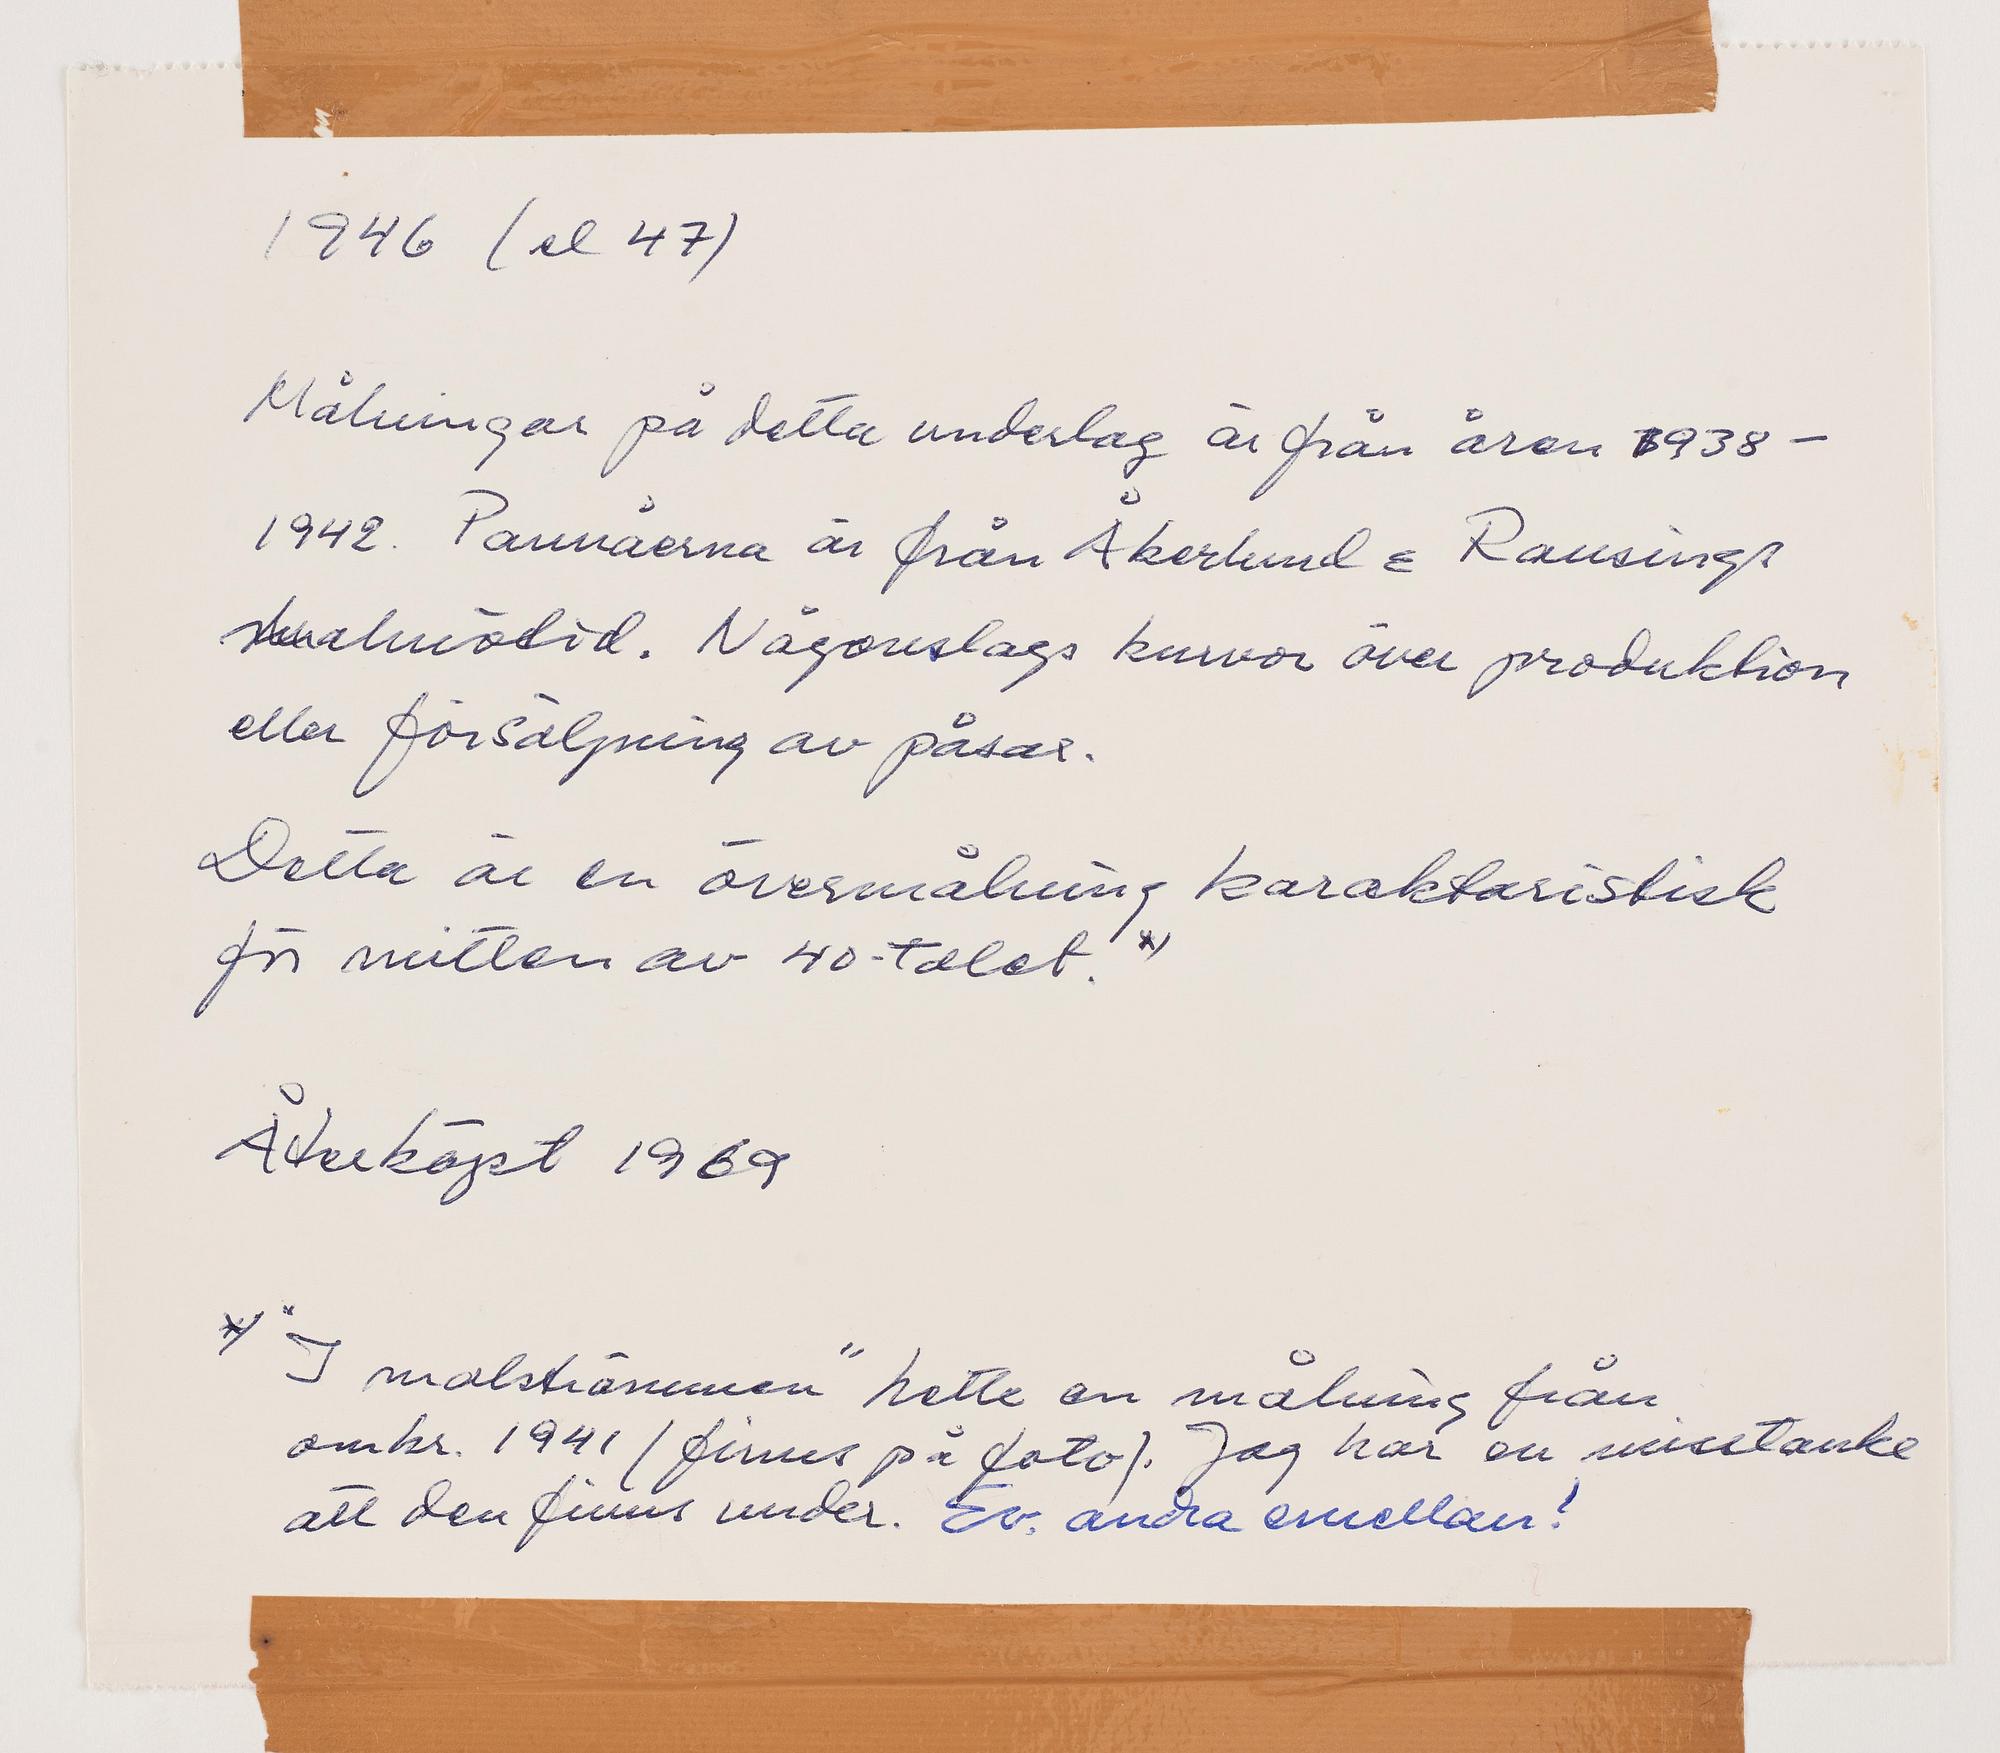 1946 (el 47)
Målningar på detta underlag är från åren 1938 –
1942. Pannåerna är från Åkerlund & Rausings
malmötid. Någonslags kurvor över produktion
eller försäljning av påsar.
Detta är en övermålning karaktaristisk
för mitten av 40-talet. *)
Återköpt 1969
*) "I malströmmen" hette en målning från
omkr. 1941 (finns på foto). Jag har en misstanke
att den finns under. Ev. andra emellan!